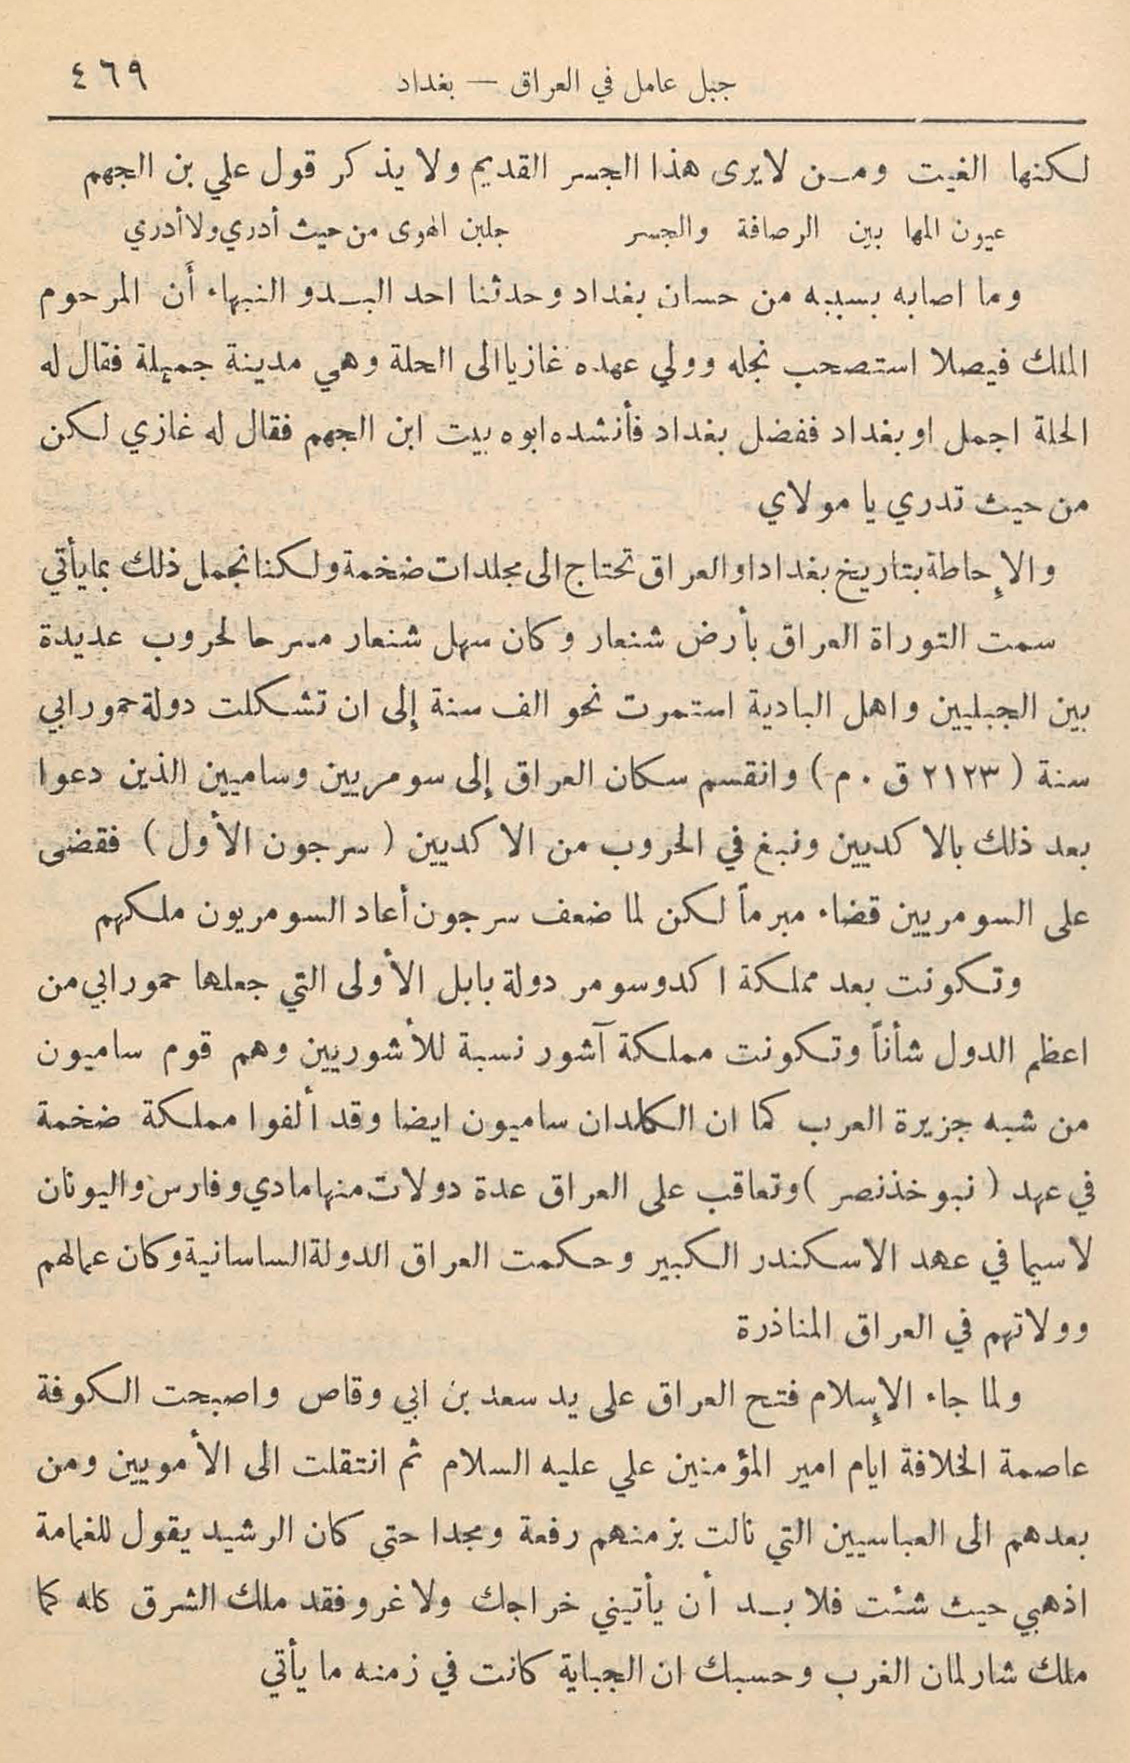 جبل عامل في العراق — بغداد ٤٦٩
لكنها الغيت ومن لايرى هذا الجسر القديم ولا يذكر قول علي بن الجهم
عيون المها بين الرصافة والجسر جلبن الهوى من حيث أدري ولا أدري
وما اصابه بسببه من حسان بغداد وحدثنا احد البدو النبهاء أن المرحوم
الملك فيصلا استصحب نجله وولي عهده غازيا الى الحلة وهي مدينة جميلة فقال له
الحلة اجمل او بغداد ففضل بغداد فأنشده ابوه بيت ابن الجهم فقال له غازي لكن
من حيث تدري يا مولاي
والإحاطة بتاريخ بغداد او العراق تحتاج الى مجلدات ضخمة ولكنا نجمل ذلك بما يأتي
سمت التوراة العراق بأرض شنعار وكان سهل شنعار مسرحا لحروب عديدة
بين الجبليين واهل البادية استمرت نحو الف سنة إلى ان تشكلت دولة حمورابي
سنة ( ٢١٢٣ ق . م ) وانقسم سكان العراق إلى سومريين وساميين الذين دعوا
بعد ذلك بالاكديين ونبغ في الحروب من الاكديين ( سرجون الأول ) فقضى
على السومريين قضاء مبرماً لكن لما ضعف سرجون أعاد السومريون ملكهم
وتكونت بعد مملكة اكد وسومر دولة بابل الأولى التي جعلها حمورابي من
اعظم الدول شأناً وتكونت مملكة آشور نسبة للأشوريين وهم قوم ساميون
من شبه جزيرة العرب كما ان الكلدان ساميون ايضا وقد ألفوا مملكة ضخمة
في عهد ( نبوخذنصر ) وتعاقب على العراق عدة دولات منها مادي وفارس واليونان
لاسيما في عهد الاسكندر الكبير وحكمت العراق الدولة الساسانية وكان عمالهم
وولاتهم في العراق المناذرة
ولما جاء الإسلام فتح العراق على يد سعد بن ابي وقاص واصبحت الكوفة
عاصمة الخلافة ايام امير المؤمنين علي عليه السلام ثم انتقلت الى الأمويين ومن
بعدهم الى العباسيين التي نالت بزمنهم رفعة ومجدا حتى كان الرشيد يقول للغمامة
اذهبي حيث شئت فلا بد أن يأتيني خراجك ولا غرو فقد ملك الشرق كله كما
ملك شارلمان الغرب وحسبك ان الجباية كانت في زمنه ما يأتي